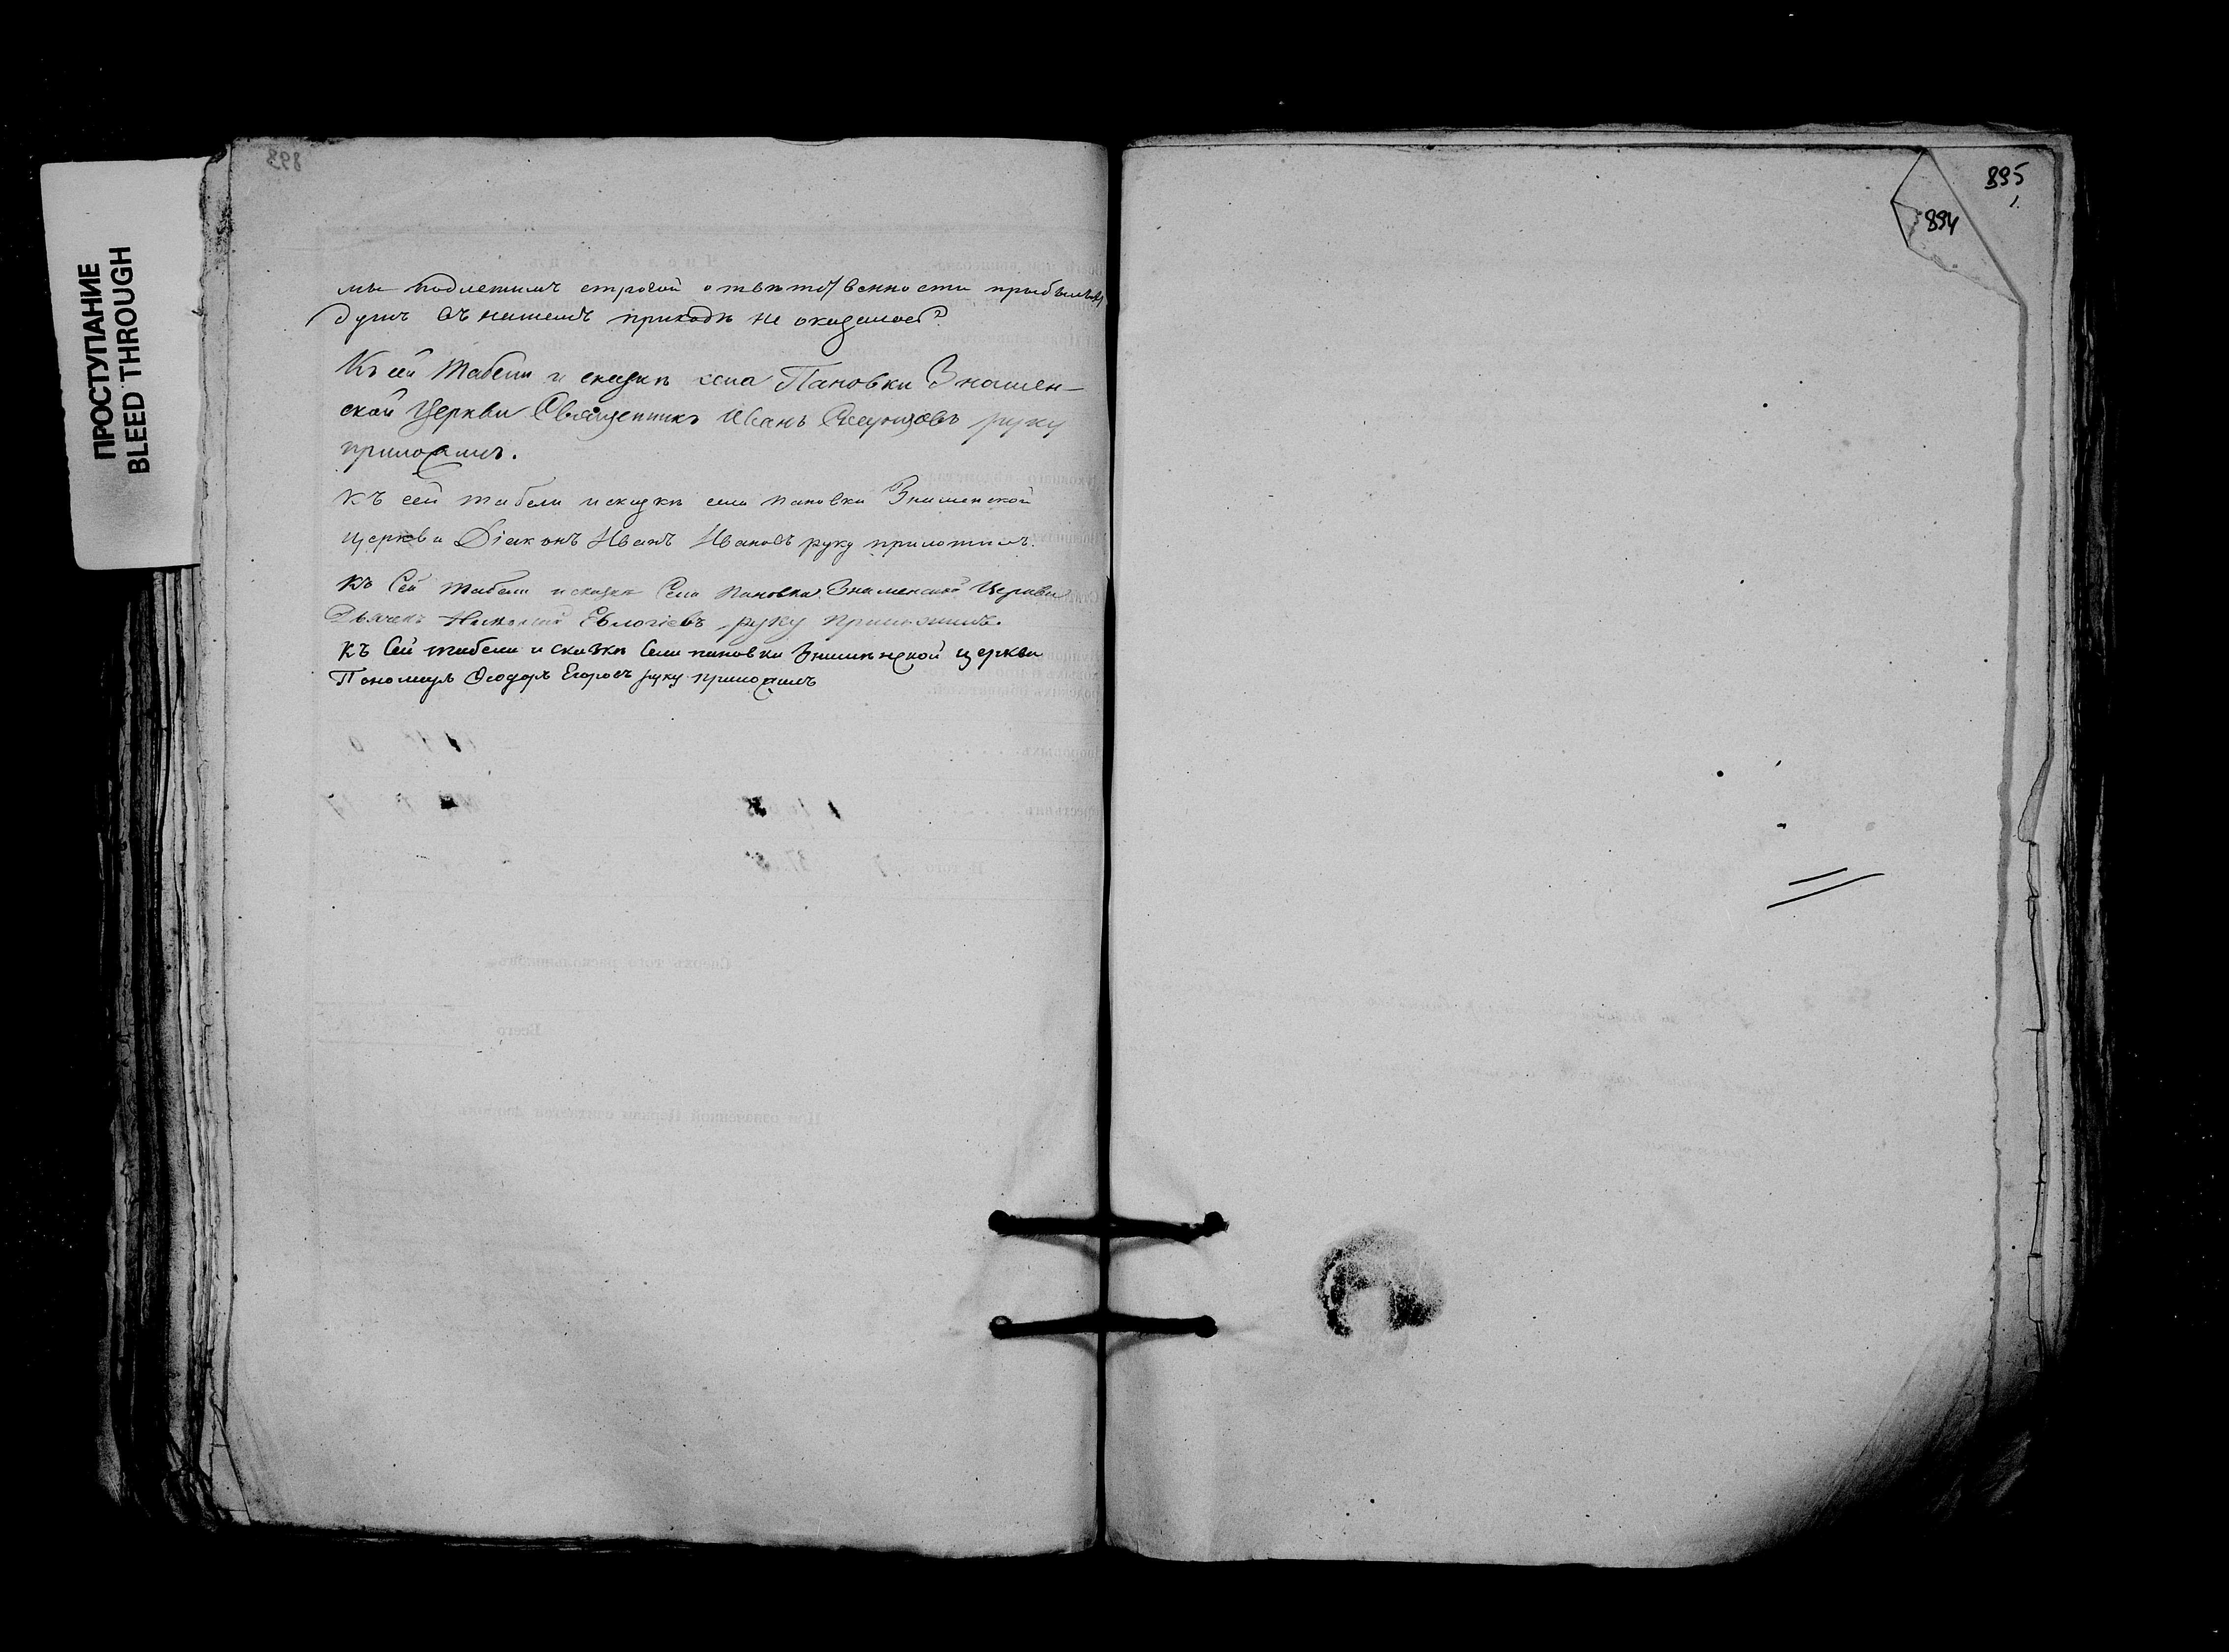 ПРОСТУПАНИЕ
BLEED THROUGH
мы подлежимъ строгой отвѣтственности прибылыхъ
душъ въ нашемъ приходѣ не оказалось
Къ сей табели и сказкѣ села Пановки Знамен-
ской Церкви Священникъ Иванъ руку
приложилъ.
Къ сей табели и сказкѣ села Пановки Знаменской
церкви Діаконъ Иванъ Ивановъ руку приложилъ.
Къ Сей табели и сказкѣ Села Пановки Знаменской Церкви
Дьячекъ Евлогіевъ руку приложилъ.
Къ Сей табели и сказкѣ Села пановки Знаменской церкви
Пономарь Ѳеодоръ Егоровъ руку приложилъ
895
894